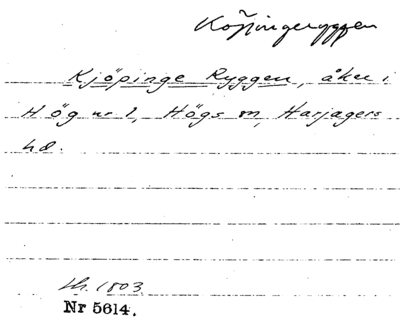 Köpingeryggen
Kjöpinge Ryggen, åker i
Hög nr 1, Högs sn, Harjagers
hd.
Lh. 1803
Nr 5614.